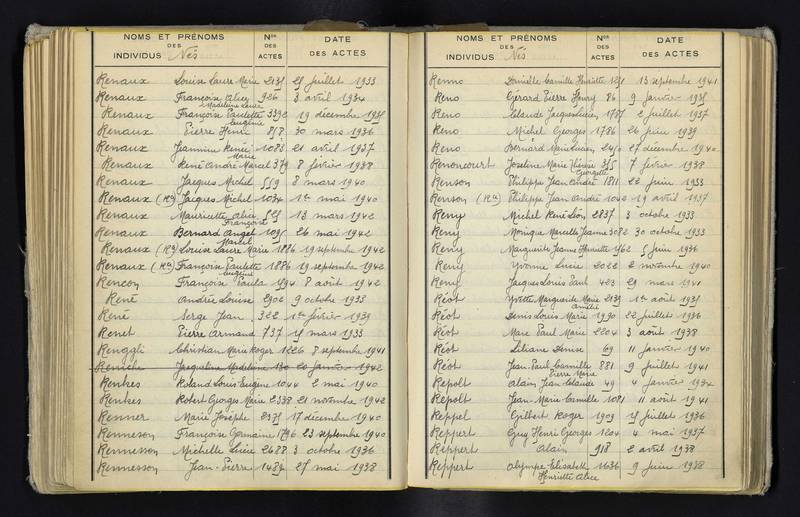 NOMS ET PRÉNOMS
DES
INDIVIDUS Nés
Nos
DES
ACTES
DATE
DES ACTES
Renaux Louise Laure Marie 25 juillet 1933
Renaux Françoise Alice 926 3 avril 1934
Madeleine Laure
Renaux Françoise Paulette 19 décembre 1935
Eugénie
Renaux Pierre Henri 858 30 mars 1936
Renaux Jeannine Renée 1083 21 avril 1937
Marie
Renaux René André Marcel 379 8 février 1938
Renaux Jacques Michel 559 8 mars 1940
Renaux (Rn) Jacques Michel 1034 1er mai 1940
Renaux Mauricette Alice 525 13 mars 1942
Françoise
Renaux Bernard Angel 1095 26 mai 1942
Marcel
Renaux (Rn) Louise Laure Marie 1886 19 septembre 1942
Renaux (Rn) Françoise Paulette 1886 19 septembre 1942
Eugénie
Rencon Françoise Paula 8 août 1942
René Andrée Louise 2902 9 octobre 1933
René Serge Jean 322 1er février 1939
Renet Pierre Armand 737 15 mars 1933
Renggli Christian Marie Roger 1226 8 septembre 1941
Reniche Jacqueline Madeleine 130 20 janvier 1942
Renkes Roland Louis Eugène 1044 2 mai 1940
Renkes Robert Georges Marie 2338 21 novembre 1942
Renner Marie Josèphe 2535 17 décembre 1940
Renneson Françoise Germaine 1796 23 septembre 1940
Rennesson Michelle Luce 2688 3 octobre 1936
Rennesson Jean-Pierre 1489 25 mai 1938
NOMS ET PRÉNOMS
DES
INDIVIDUS Nés
Nos
DES
ACTES
DATE
DES ACTES
Renno Danielle Camille Henriette 1251 13 septembre 1941
Reno Gérard Pierre Henry 86 9 janvier 1935
Reno Claude Jacques Lucien 1787 2 juillet 1937
Reno Michel Georges 1786 26 juin 1939
Reno Bernard Marie Lucien 27 décembre 1940
Renoncourt Joseline Marie Thérèse 355 7 février 1938
Georgette
Renson Philippe Jean André 1811 22 juin 1933
Renson (Rn) Philippe Jean André 1042 19 avril 1937
Remy Michel René Léon 2837 3 octobre 1933
Remy Monique Marcelle Jeanne 3082 30 octobre 1933
Remy Marguerite Jeanne Henriette 5 juin 1936
Remy Yvonne Lucie 2022 2 novembre 1940
Remy Jacques Louis Paul 423 29 mars 1941
Réot Yvette Marguerite Marie 2135 1er août 1935
Amélie
Réot Denis Louis Marie 1990 22 juillet 1936
Réot Marc Paul Marie 2204 3 août 1938
Réot Liliane Denise 69 11 janvier 1940
Réot Jean-Paul Camille 881 9 juillet 1941
Pierre Marie
Repolt Alain Jean Claude 49 4 janvier 1934
Repolt Jean Marie Camille 1081 11 août 1941
Reppel Gilbert Roger 1909 15 juillet 1936
Reppert Guy Henri Georges 1204 4 mai 1937
Reppert Alain 918 2 avril 1938
Reppert Olympe Elisabeth 1636 9 juin 1938
Henriette Alice